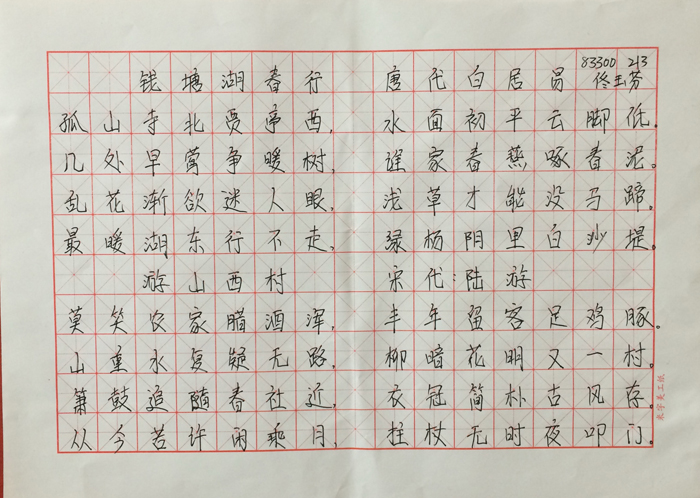 83300 213
钱塘湖春行 唐代白居易 佟玉芬
孤山寺北贾亭西，水面初平云脚低。
几处早莺争暖树，谁家春燕啄春泥。
乱花渐欲迷人眼，浅草才能没马蹄。
最暖湖东行不走，绿杨阴里白沙堤。
游山西村 宋代：陆游
莫笑农家腊酒浑，丰年留客足鸡豚。
山重水复疑无路，柳暗花明又一村。
箫鼓追随春社近，衣冠简朴古风存。
从今若许闲乘月，拄杖无时夜叩门。